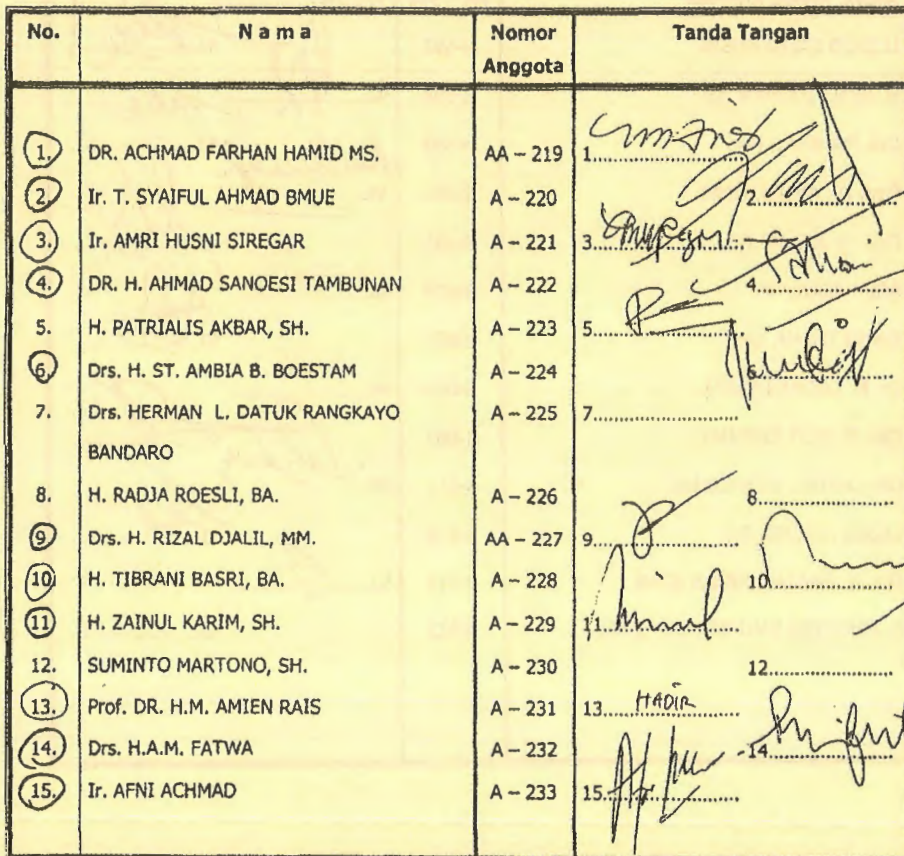 No. N a m a Nomor Anggota Tanda Tangan
1. DR. ACHMAD FARHAN HAMID MS. AA – 219 1.
2. Ir. T. SYAIFUL AHMAD BMUE A – 220 2.
3. Ir. AMRI HUSNI SIREGAR A – 221 3.
4. DR. H. AHMAD SANOESI TAMBUNAN A – 222 4.
5. H. PATRIALIS AKBAR, SH. A – 223 5.
6. Drs. H. ST. AMBIA B. BOESTAM A – 224
7. Drs. HERMAN L. DATUK RANGKAYO A – 225 7.
BANDARO
8. H. RADJA ROESLI, BA. A – 226 8.
9. Drs. H. RIZAL DJALIL, MM. AA – 227 9.
10. H. TIBRANI BASRI, BA. A – 228 10.
11. H. ZAINUL KARIM, SH. A – 229 11.
12. SUMINTO MARTONO, SH. A – 230 12.
13. Prof. DR. H.M. AMIEN RAIS A – 231 13. HADIR
14. Drs. H.A.M. FATWA A – 232 14.
15. Ir. AFNI ACHMAD A – 233 15.